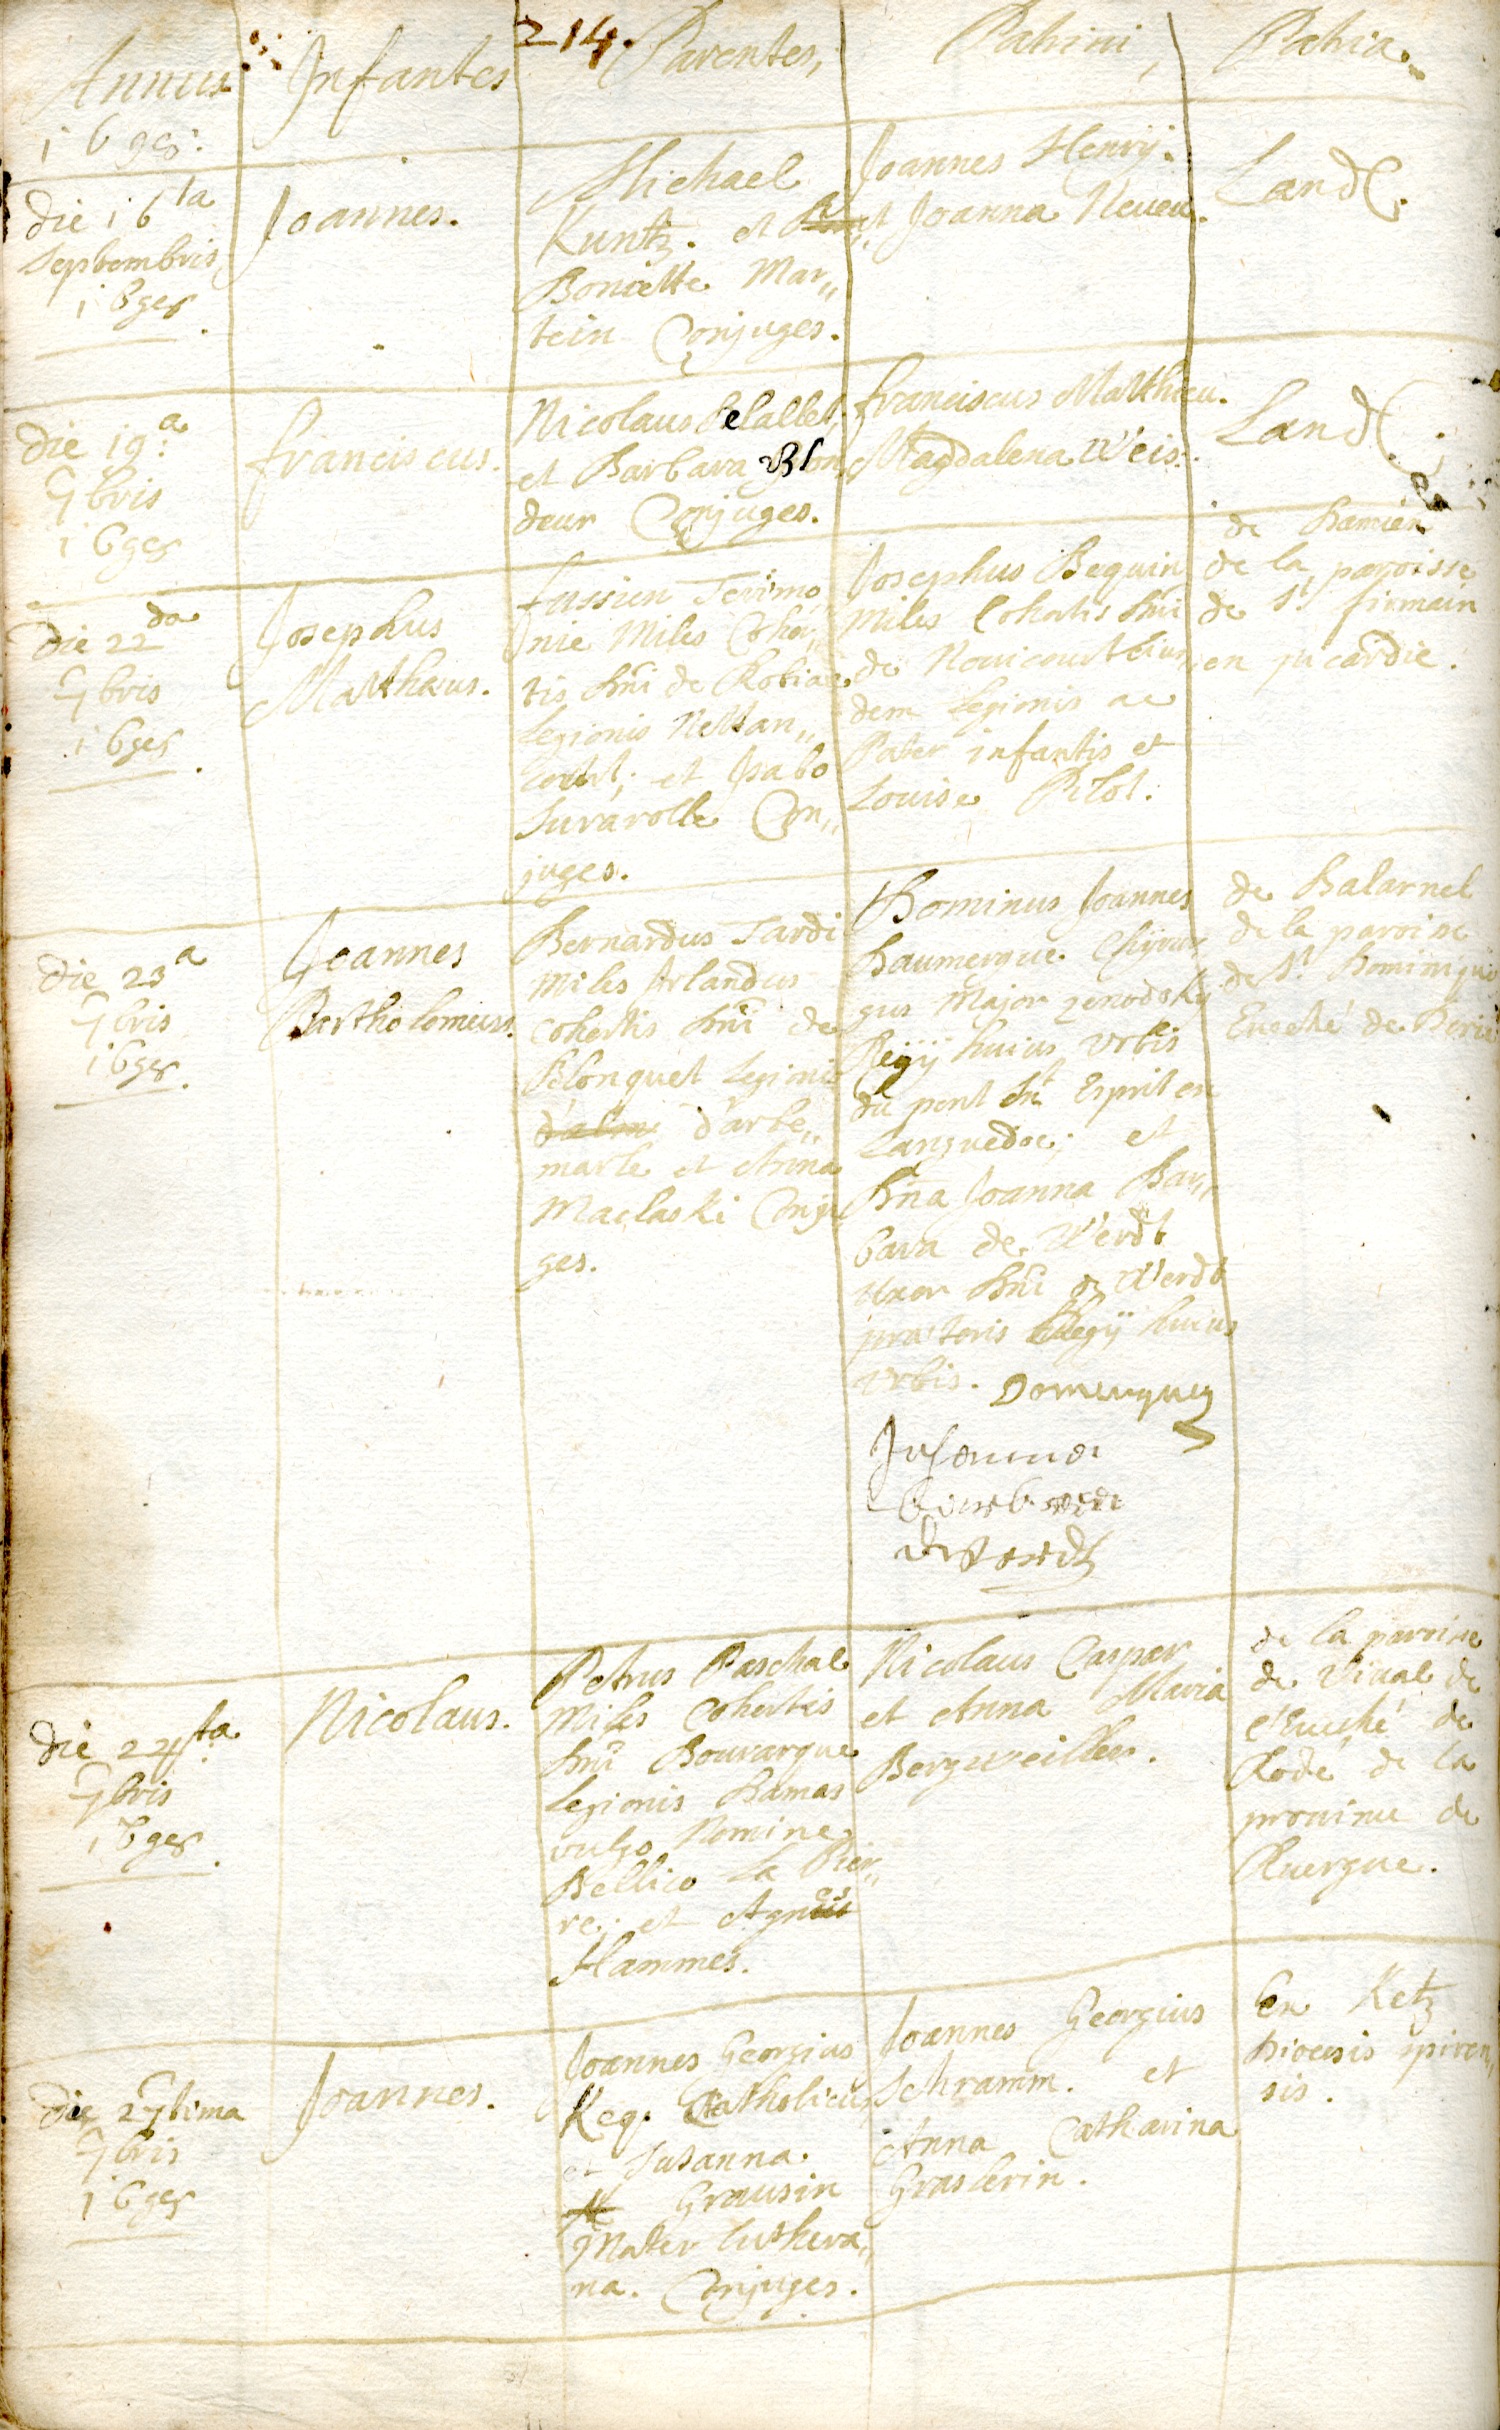 214.
Annus
1695.
Infantes
Parentes,
Patrini,
Patria.
die 16ta
Septembris
1695
Joannes.
Michael
Kuntz. et
Boniette Mar,,
tein Conjuges.
Joannes Henrÿ.
et Joanna Neveu.
Land.
die 19.a
7bris
1695
franciscus.
Nicolaus Belallet,
et Barbara Blon,,
deur Conjuges.
franciscus Matthieu.
Magdalena Weis.
Land.
die 22da
7bris
1695
Josephus
Matthæus.
fussien
nie Miles Cohor,,
tis dni de Robiac
Legionis Nettan,,
court; et Isabo
Suravolle Con,,
juges.
Josephus Bequin
Miles Cohortis dni
de Novicourt eius,,
dem Legionis ac
Pater infantis et
Louise Pilot.
de damien
de la paroisse
de St firmain
en picardie.
die 23a
7bris
1695.
Joannes
Bartholomeus.
Bernardus Tardi
Miles Irlandus
Cohortis dni de
Pelonquet Legionis
d'arbe,,
marle et Anna
Maclaski Conju
ges.
Dominus Joannes
Daumergue Chyrur,,
gus Major zenodokÿ
Regÿ huius Urbis
du pont St Esprit en
Languedoc; et
Dna Joanna Bar,,
bara de Werdt
Uxor dni de Werdt
prætoris Regÿ huius
Urbis. Domergues
de Balarnel
de la paroise
de St Dominique
Eveché de
die 24ta
7bris
1695.
Nicolaus.
Petrus Paschal
Miles Cohortis
dni Bouvargue
Legionis Damas
vulgo Nomine
Bellico La Pier,,
re; et Agnes
Hammes.
Nicolaus Caspar
et Anna Maria
Bergweiller.
de la paroise
de Viual de
l'Eueché de
Rode de la
prouince de
Ruergue.
die 27tima
7bris
1695
Joannes.
Joannes Georgius
Keq. Catholicus,
et Susanna
Grausin
Mater luthera,,
na. Conjuges.
Joannes Georgius
Schramm. et
Anna Catharina
Graslerin.
en Ketz
Diœcesis spiren,,
sis.